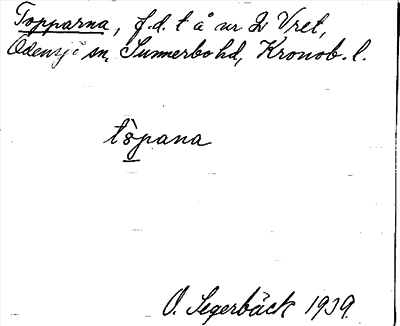 Topparna, f.d. t å nr 2 Vret,
Odensjö sn, Sunnerbo hd, Kronob. l.
tòpana
O. Segerbäck 1939.